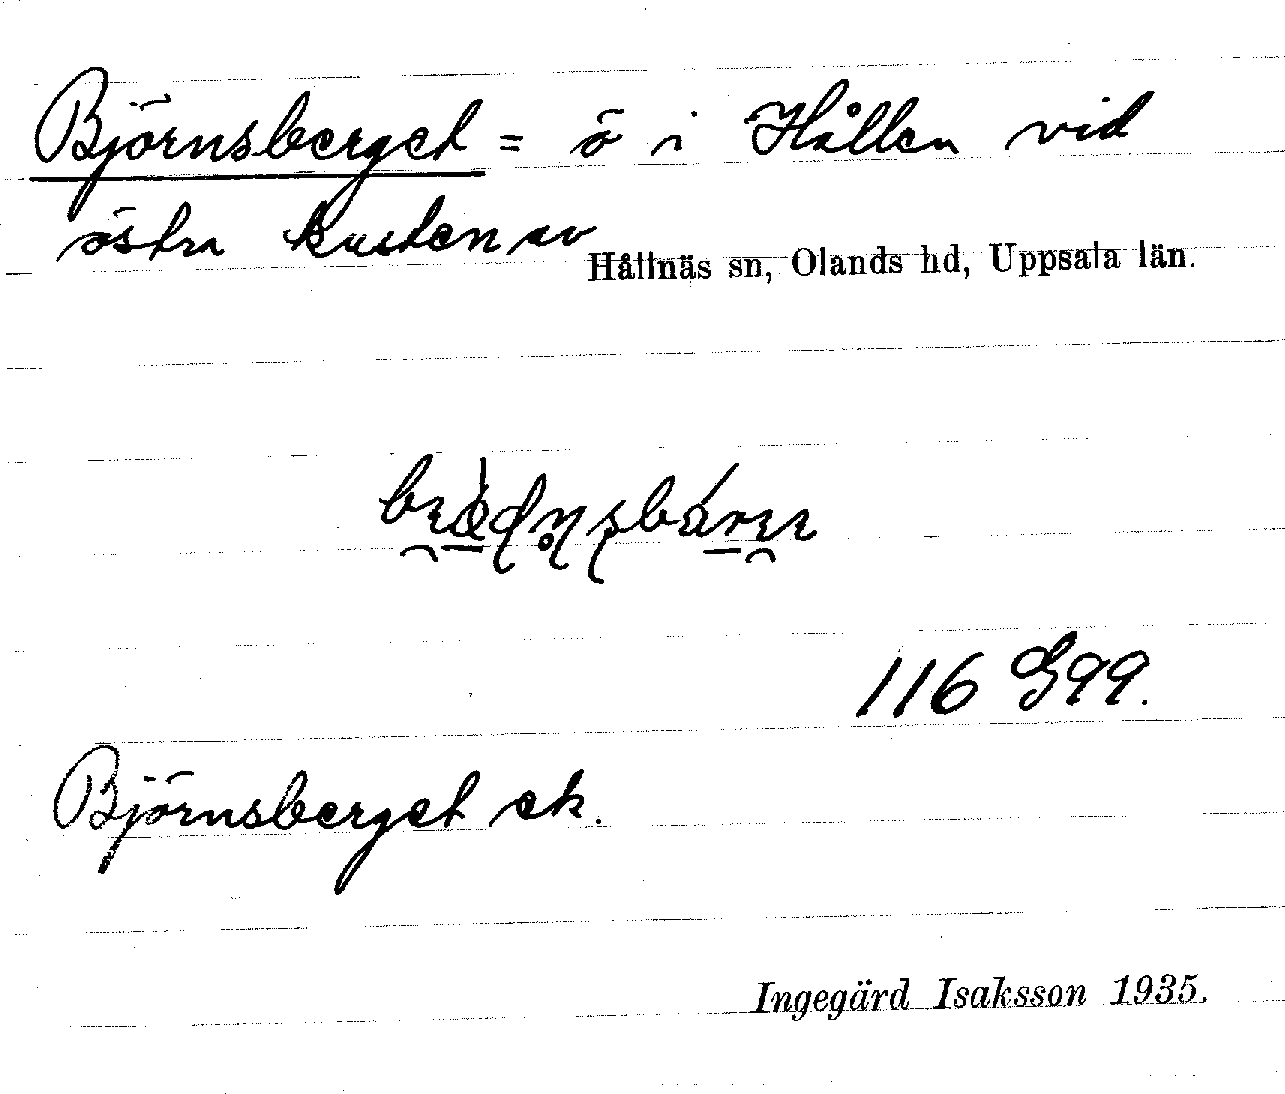 Björnsberget = ö i Hållen vid
östra kusten av Hållnäs sn, Olands hd, Uppsala län.
116 G99.
Björnsberget ek.
Ingegärd Isaksson 1935.